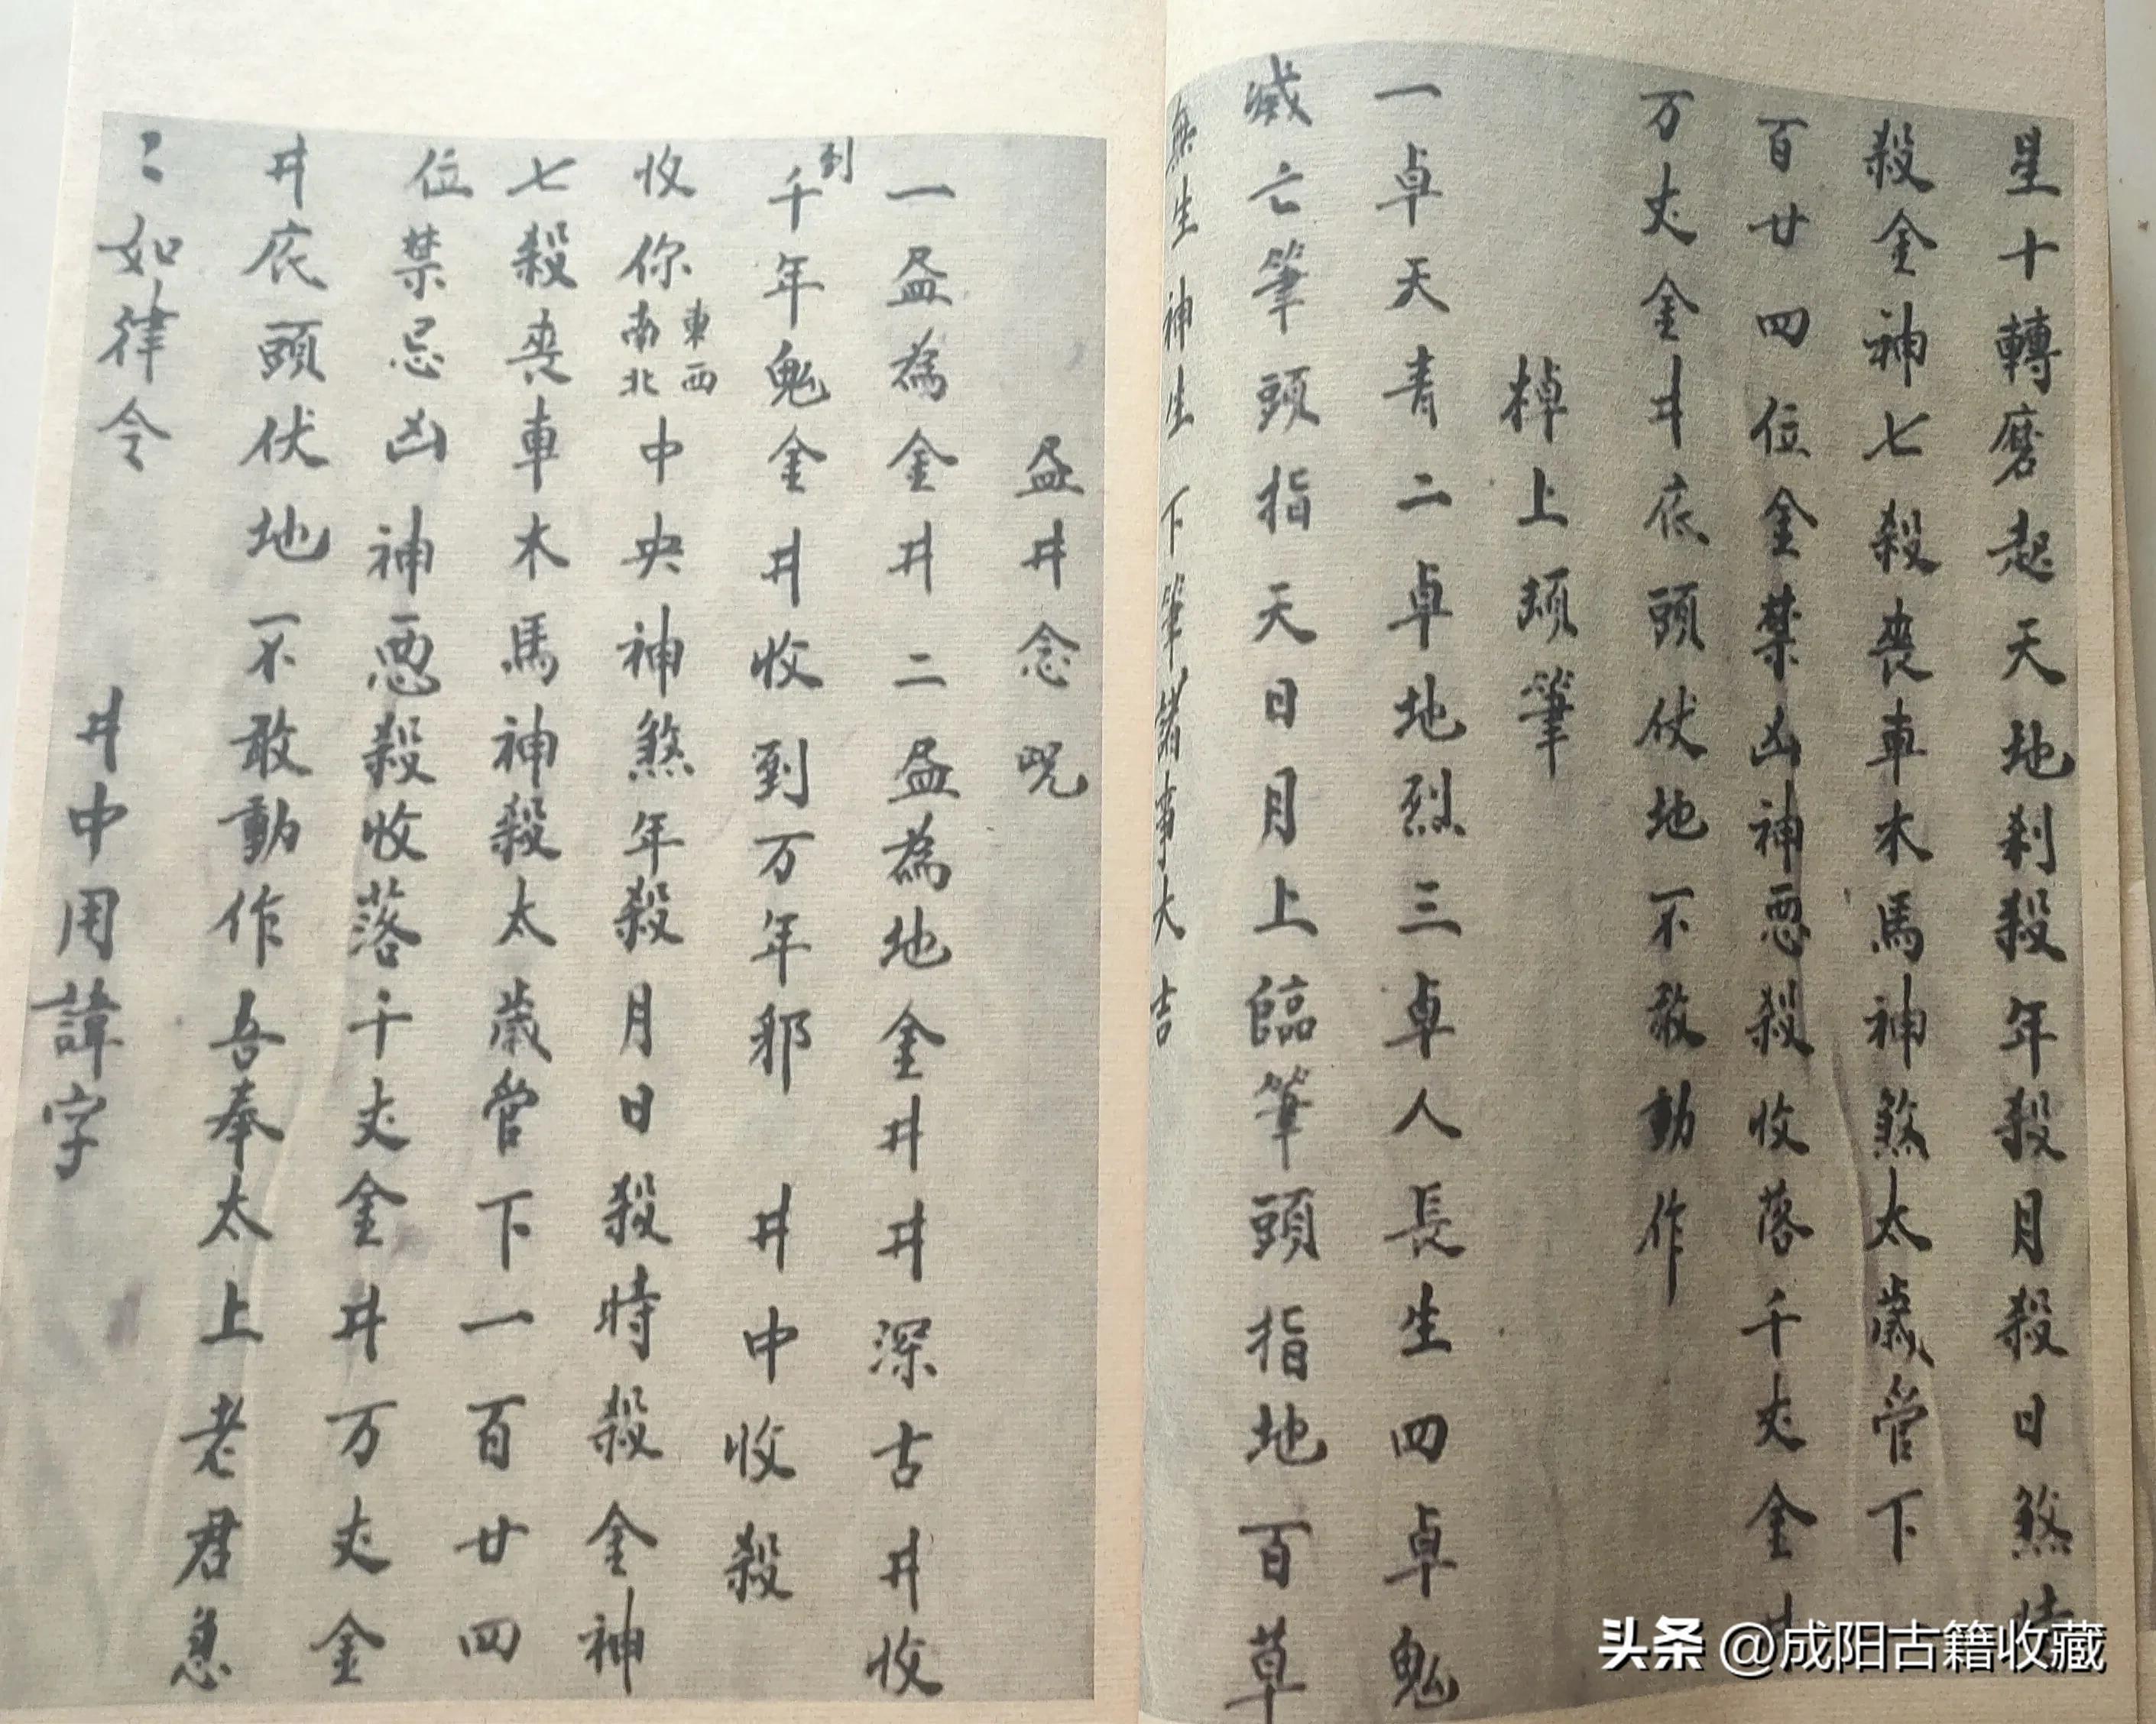 星十轉磨起天地刹殺年殺月殺日煞時
殺金神七殺喪車木馬神煞太歲管下
百廿四位金禁凶神惡殺收落千丈金井
万丈金井底頭伏地不敢動作
棹上頑筆
一卓天青二卓地烈三卓人長生四卓鬼
滅亡筆頭指天日月上臨筆頭指地百草
無生神生下筆諸事大吉
盈井念咒
一盈為金井二盈為地金井井深古井收
到千年鬼金井收到万年邪井中收殺
收你東西南北中央神煞年殺月日殺時殺金神
七殺喪車木馬神殺太歲管下一百廿四
位禁忌凶神惡殺收落千丈金井万丈金
井底頭伏地不敢動作吾奉太上老君急
〻如律令 井中用諱字
头条 @成阳古籍收藏